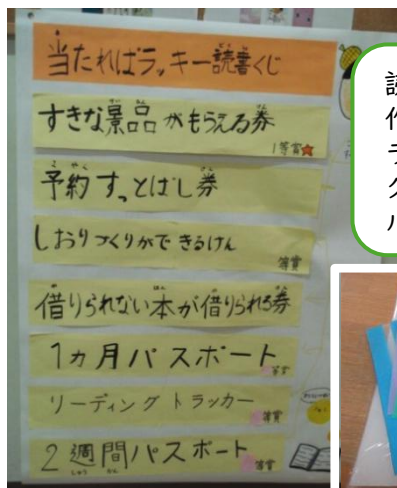 当たればラッキー読書くじ
すきな景品がもらえる券
1等賞
予約すっとばし券
しおりづくりができるけん
借りられない本が借りられる券
1ヵ月パスポート
リーディングトラッカー
2週間パスポート
しゅう かん